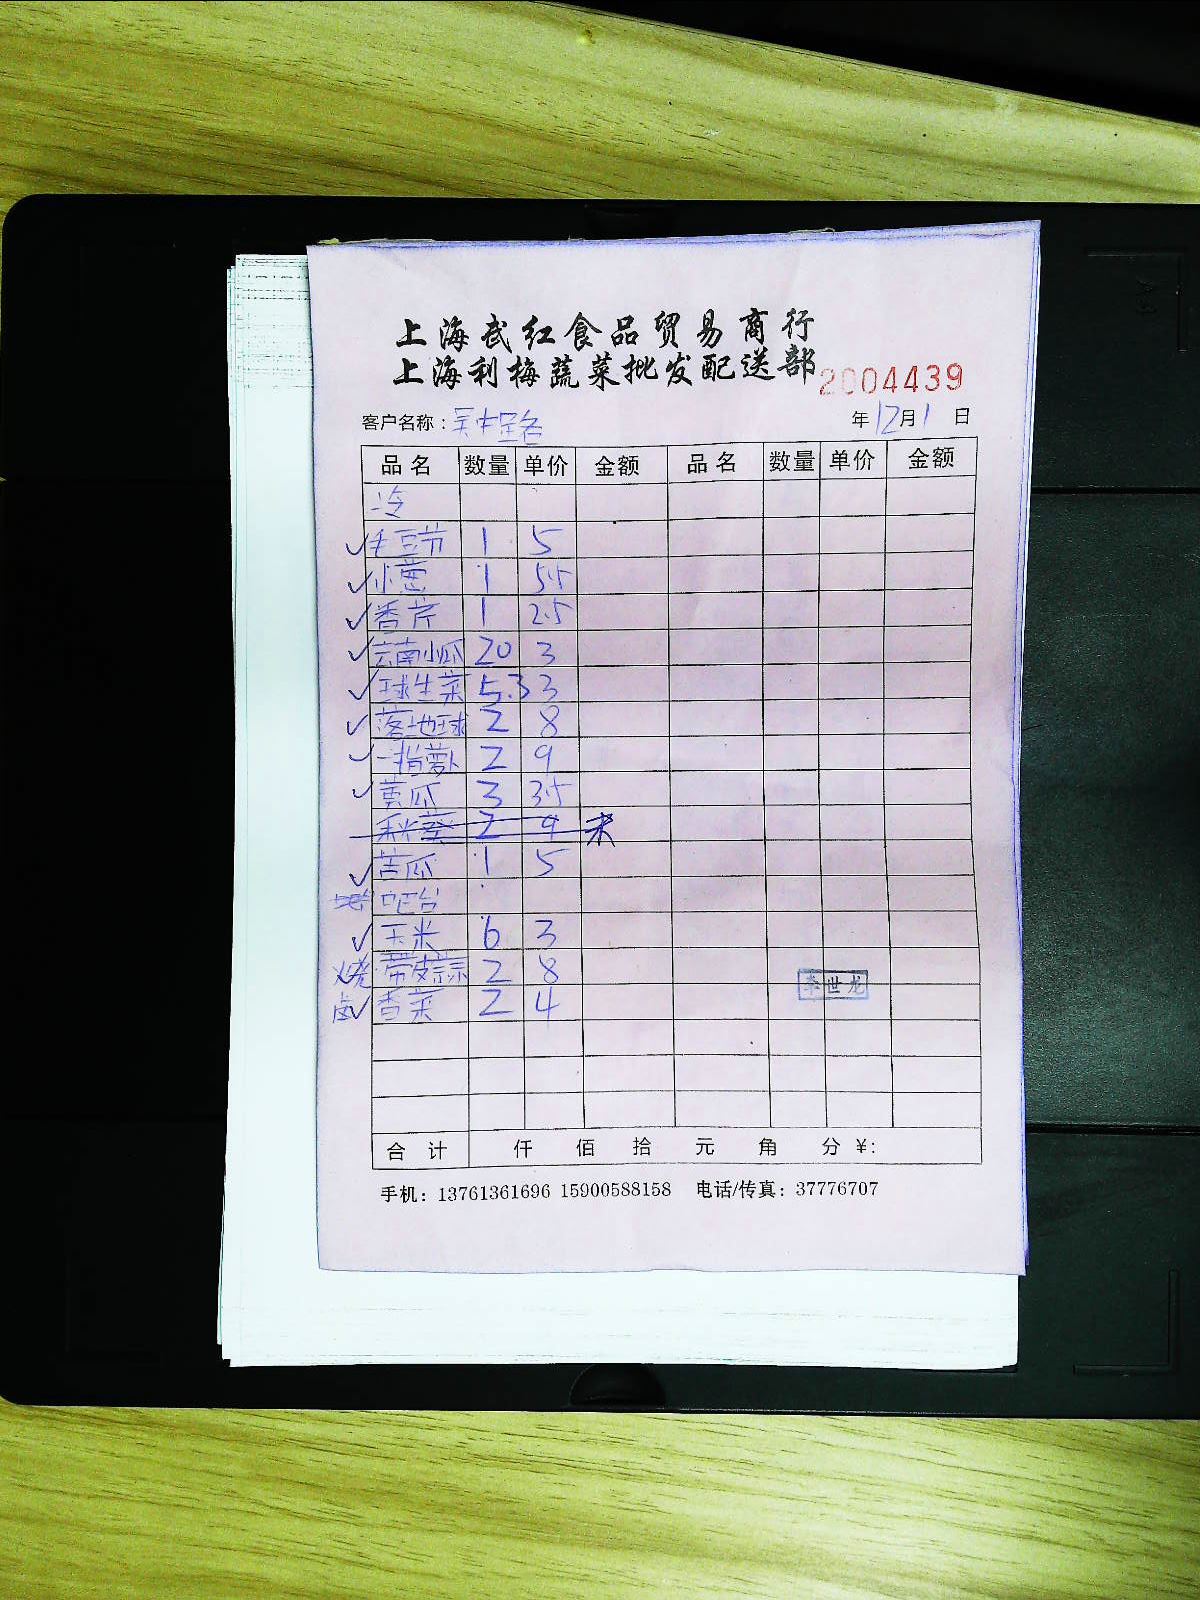 上海武红食品贸易商行
上海利梅蔬菜批发配送部
2004439
客户名称： 年12月1日
品名 数量 单价 金额 品名 数量 单价 金额
冷
毛豆节 1 5
小葱 1 5.5
香芹 1 2.5
云南小瓜 20 3
球生菜 5.3 3
落地球 2 8
一指萝卜 2 9
黄瓜 3 3.5
秋葵 2 9 未
苦瓜 1 5
吧台
玉米 6 3
烧 带皮蒜 2 8
卤 香菜 2 4
李世龙
合计 仟 佰 拾 元 角 分 ¥:
手机：13761361696 15900588158 电话/传真：37776707